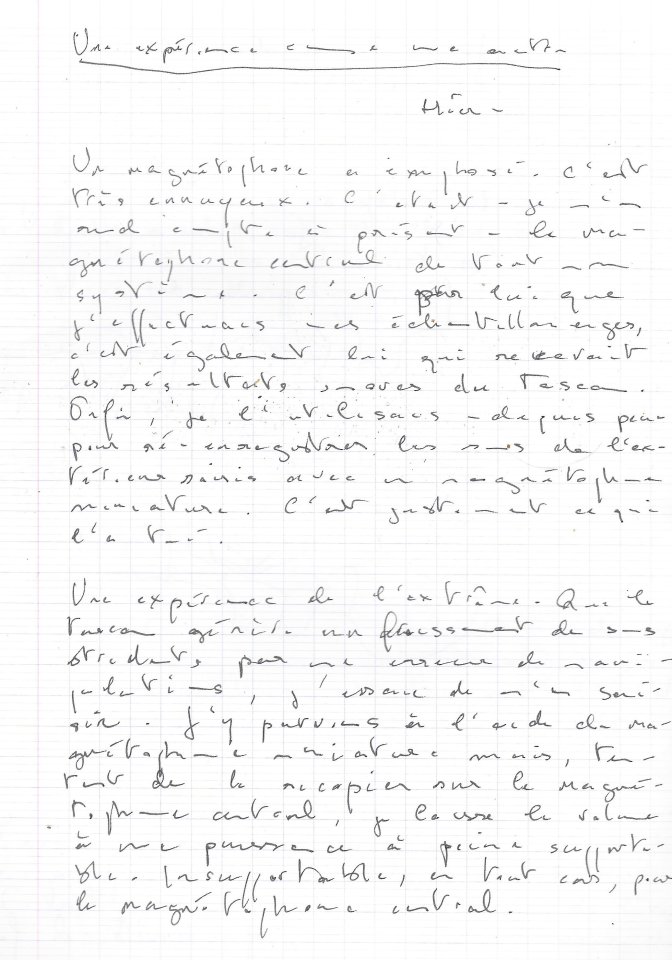 Une expérience comme une autre
Hier -
Un magnétophone a explosé. C'est
très ennuyeux. C'était - je m'en
rend compte à présent - le ma-
gnétophone central de tout mon
système. C'est par lui que
j'effectuais mes échantillonnages,
c'est également lui qui recevait
les résultats sonores du Tascam.
Enfin, je l'utilisais - depuis peu -
pour ré-enregistrer les sons de l'ex-
térieur saisis avec un magnétophone
miniature. C'est justement ce qui
l'a tué.
Une expérience de l'extrême. Que le
Tascam génère un froissement de sons
stridents par une erreur de mani-
pulations, j'essaie de m'en sai-
sir. J'y parviens à l'aide du ma-
gnétophone miniature mais, ten-
tant de le recopier sur le magné-
tophone central, je laisse le volume
à une puissance à peine supporta-
ble. Insupportable, en tout cas, pour
le magnétophone central.